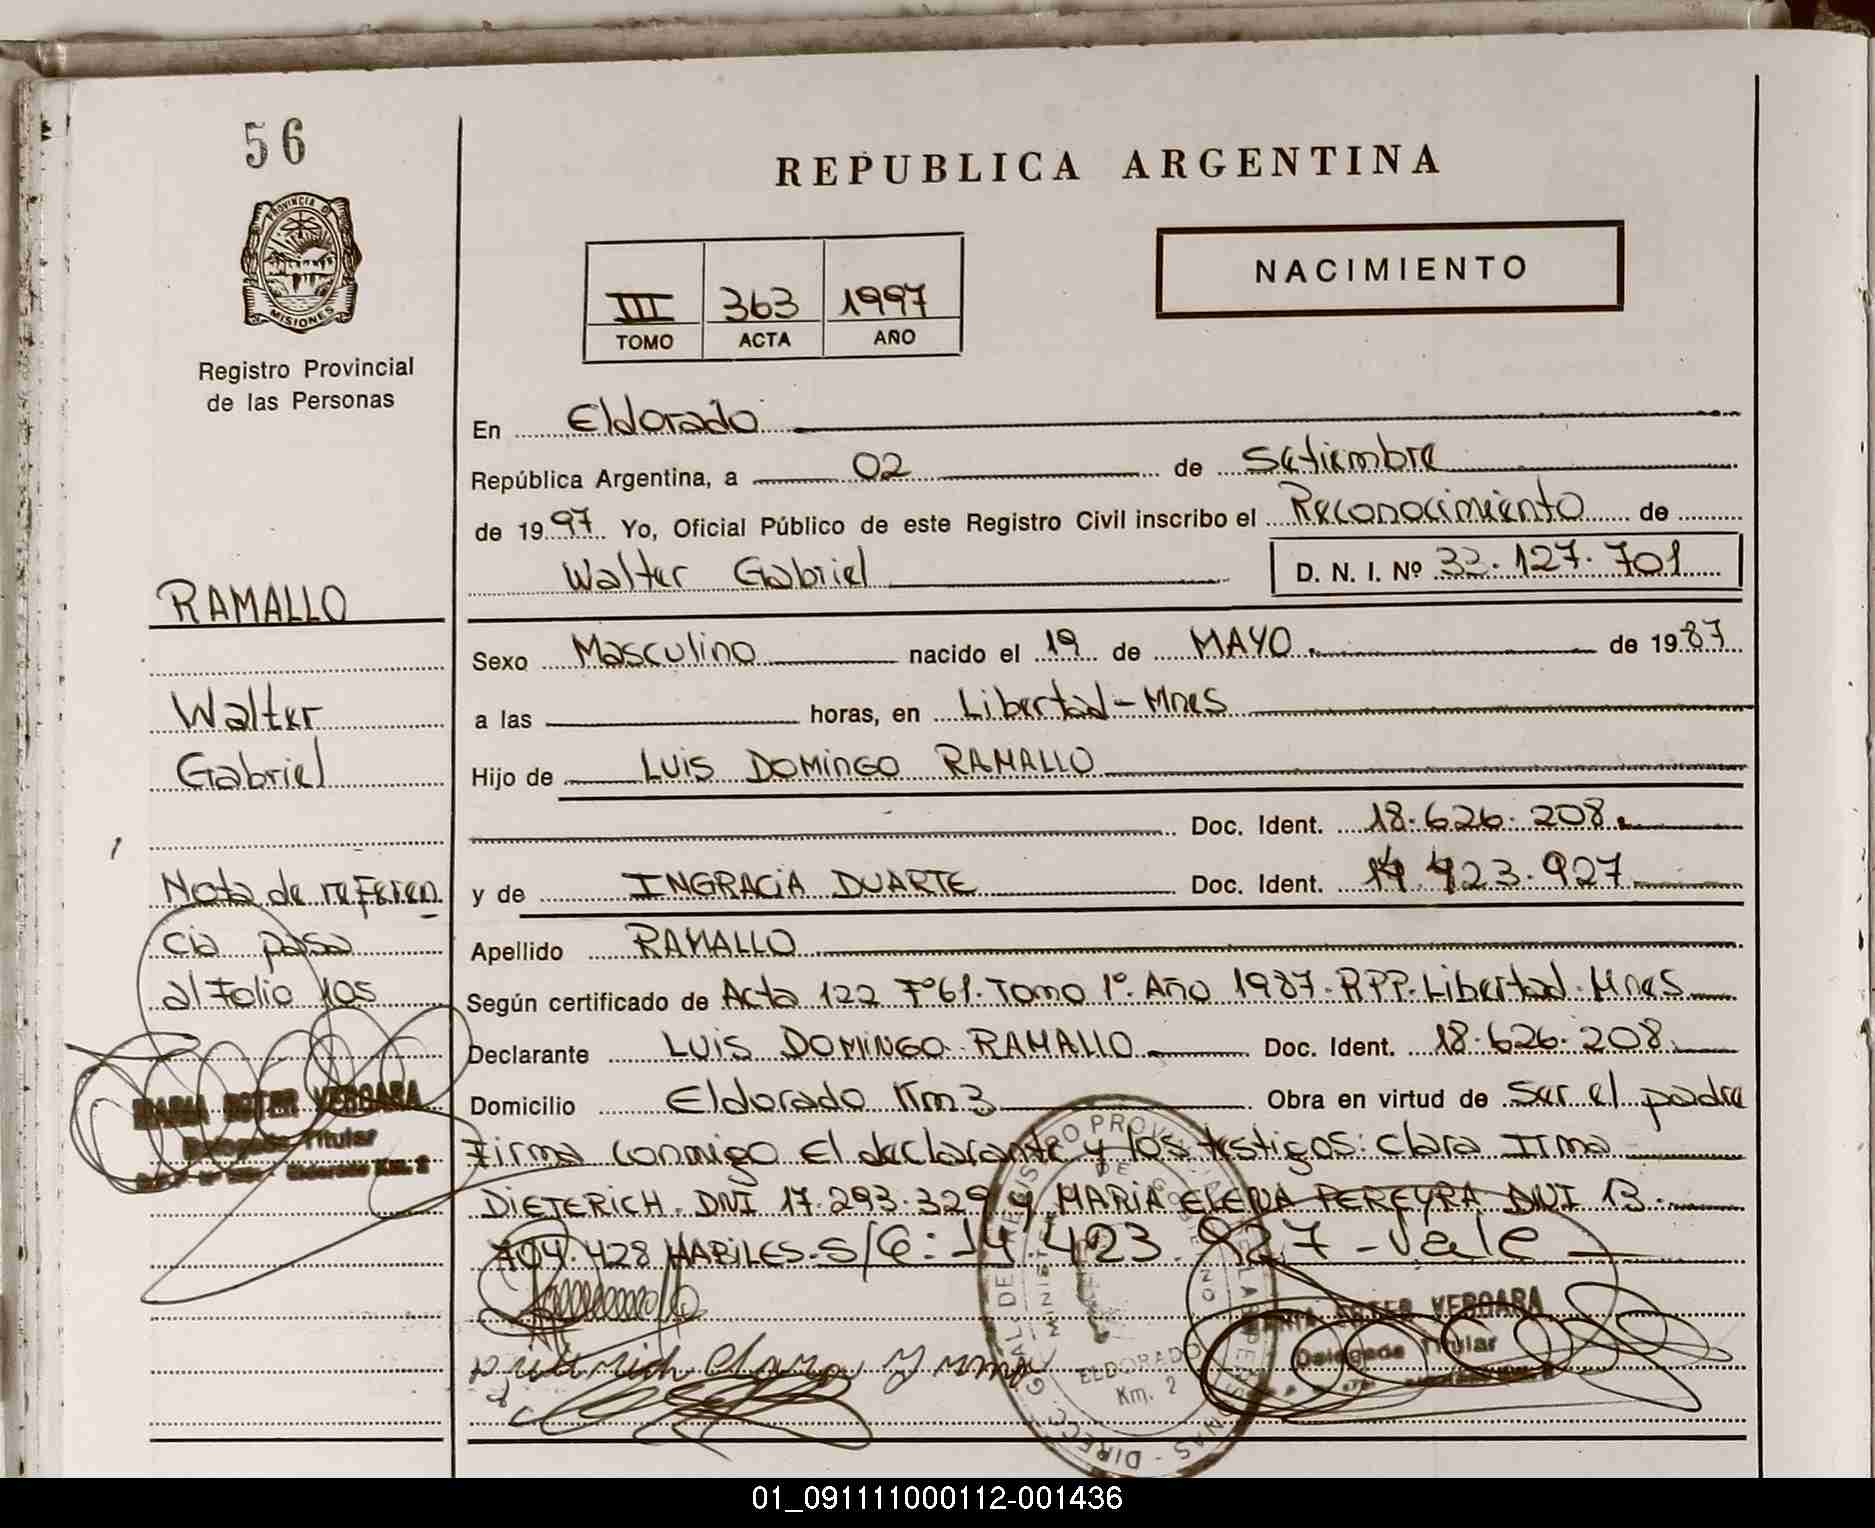 56
REPUBLICA ARGENTINA
PROVINCIA DE
MISIONES
Registro Provincial
de las Personas
III 363 1997
TOMO ACTA AÑO
NACIMIENTO
En Eldorado
República Argentina, a 02 de Setiembre
de 1997 Yo, Oficial Público de este Registro Civil inscribo el Reconocimiento de
Walter Gabriel D. N. I. Nº 33.127.701
RAMALLO
Walter
Gabriel
Sexo Masculino nacido el 19 de MAYO de 1987
a las horas, en Libertad-Mnes
Hijo de LUIS DOMINGO RAMALLO
Doc. Ident. 18.626.208
y de INGRACIA DUARTE Doc. Ident. 423.927
Apellido RAMALLO
Según certificado de Acta 122 Fº61. Tomo 1º. Año 1987. RPP. Libertad. Mnes
Declarante LUIS DOMINGO RAMALLO Doc. Ident. 18.626.208
Domicilio Eldorado Km3 Obra en virtud de Ser el padre
Firma conmigo El declarante y los testigos: Clara Irma
DIETERICH. DNI 17.293.329 y MARIA ELENA PEREYRA DNI 13.
704.428 HABILES. S/C: 14 423 927 - Vale
Nota de referen
cia pasa
al Folio 105
MARIA ESTER VERGARA
Delegada Titular
Eldorado Km. 2
Dietrich Clara Yrma
MARIA ESTER VERGARA
Delegada Titular
ELDORADO
Km. 2
01_091111000112-001436